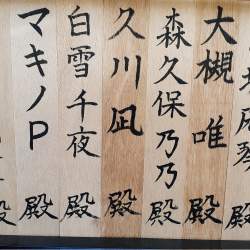 大槻 唯 殿
森久保乃乃 殿
久川 凪 殿
白雪 千夜 殿
マキノP 殿